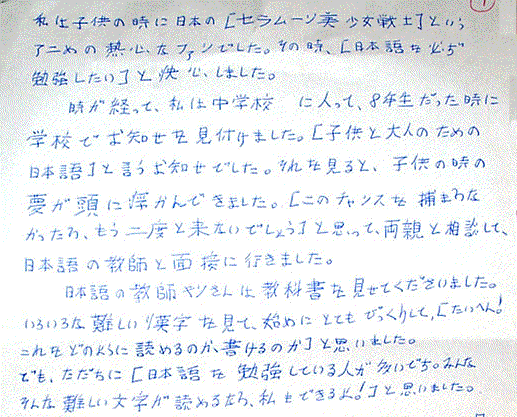 1
私は子供の時に日本の[セラムーン美少女戦士]という
アニめの熱心なファンでした。その時、[日本語を必ず
勉強したい]と快心しました。
時が経って、私は中学校に人って、8年生だった時に
学校でお知せを見付けました。[子供と大人のための
日本語]と言うお知せでした。それを見ると、子供の時の
夢が頭に浮かんできました。[このチャンスを捕まろな
かったろ、もう二度と来ないでしょう]と思って、両親と相談して、
日本語の教師と面接に行きました。
日本語の教師ヤンさんは教科書を見せてくださいました。
いろいろな難しい漢字を見て、始めにとてもびっくりして、[たいへん!
これをどのように読めるのか、書けるのか]と思いました。
でも、ただちに[日本語を勉強している人が多いでち。みんな
そんな難しい文字が読めるなら、私もできるよ!]と思いました。